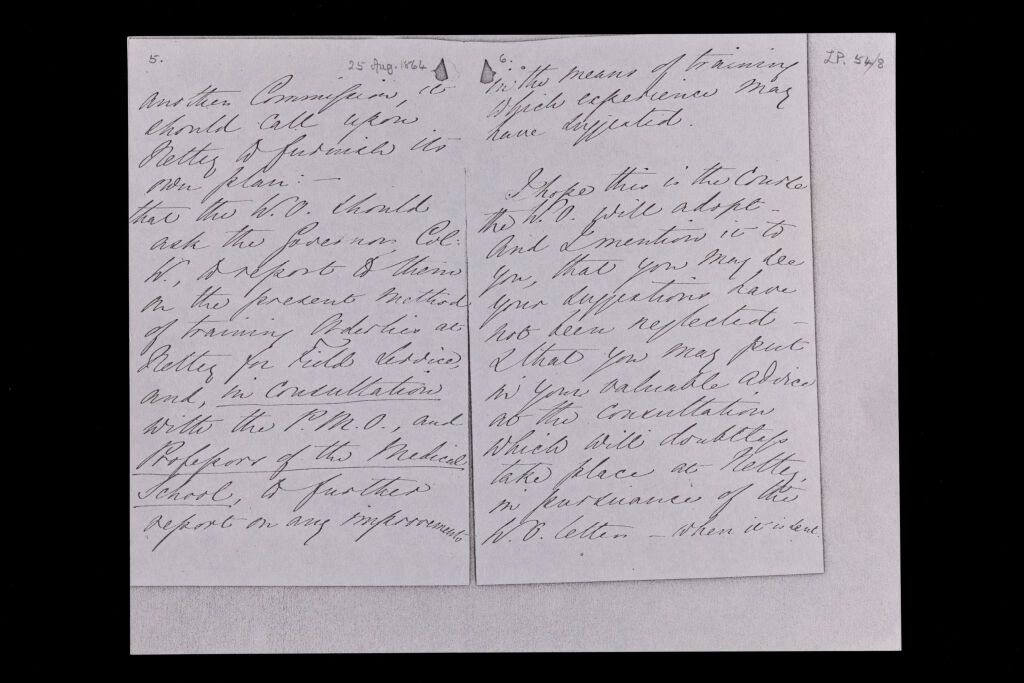 5.
25 Aug. 1864
another Commission, it
should call upon
Netley to furnish its
own plan: —
that the W.O. should
ask the Governor, Col:
W., to report to them
on the present method
of training Orderlies at
Netley for Field Service,
and, in consultation
with the P.M.O., and
Professors of the Medical
School, to further
report on any improvements
6.
in the means of training
which experience may
have suggested.
I hope this is the course
the W.O. will adopt –
And I mention it to
you, that you may see
your suggestions have
not been neglected –
& that you may put
in your valuable advice
at the consultation
which will doubtless
take place at Netley,
in pursuance of the
W.O. letter – when it is sent.
LP. 54/8